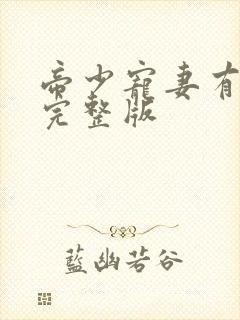 帝少寵妻有
完整版
藍幽若谷